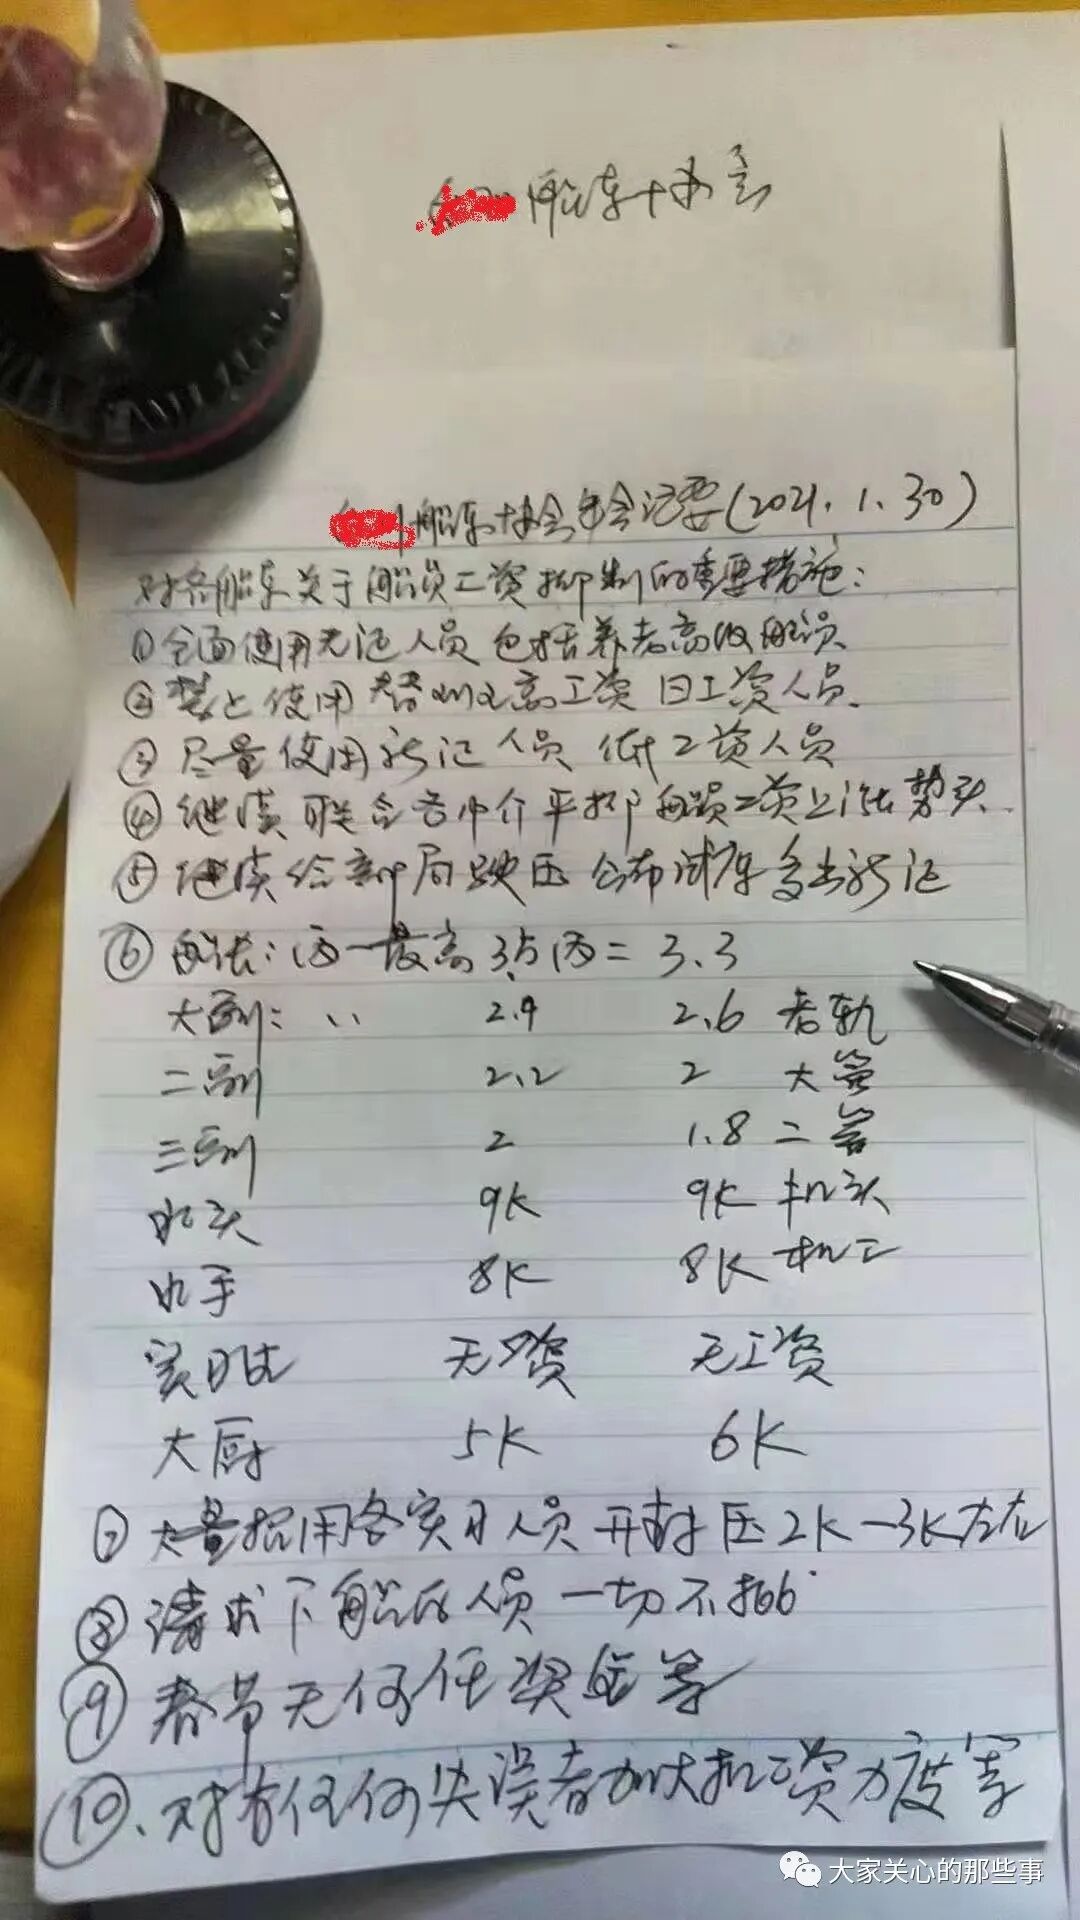 船东协会
船东协会年会记要(2021.1.30)
对各船东关于船员工资抑制的重要措施:
①全面使用无证人员 包括养老高级船员
②禁止使用 高工资 日工资人员.
③尽量使用新证人员 低工资人员
④继续联合各中介平抑船员工资上涨势头.
⑤继续给部局 压 公布试库多出新证
⑥船长:丙一最高3.5 丙二 3.3
大副: 、、 2.9 2.6 老轨
二副 2.2 2 大管
三副 2 1.8 二管
水头 9K 9K 机头
水手 8K 8K 机工
实习生 无工资 无工资
大厨 5K 6K
⑦大量招用各实习人员 开 压2K-3K左右
⑧请求下船的人员一切不批
⑨春节无何任奖金等
⑩、对有任何失误者加大扣工资力度等
大家关心的那些事